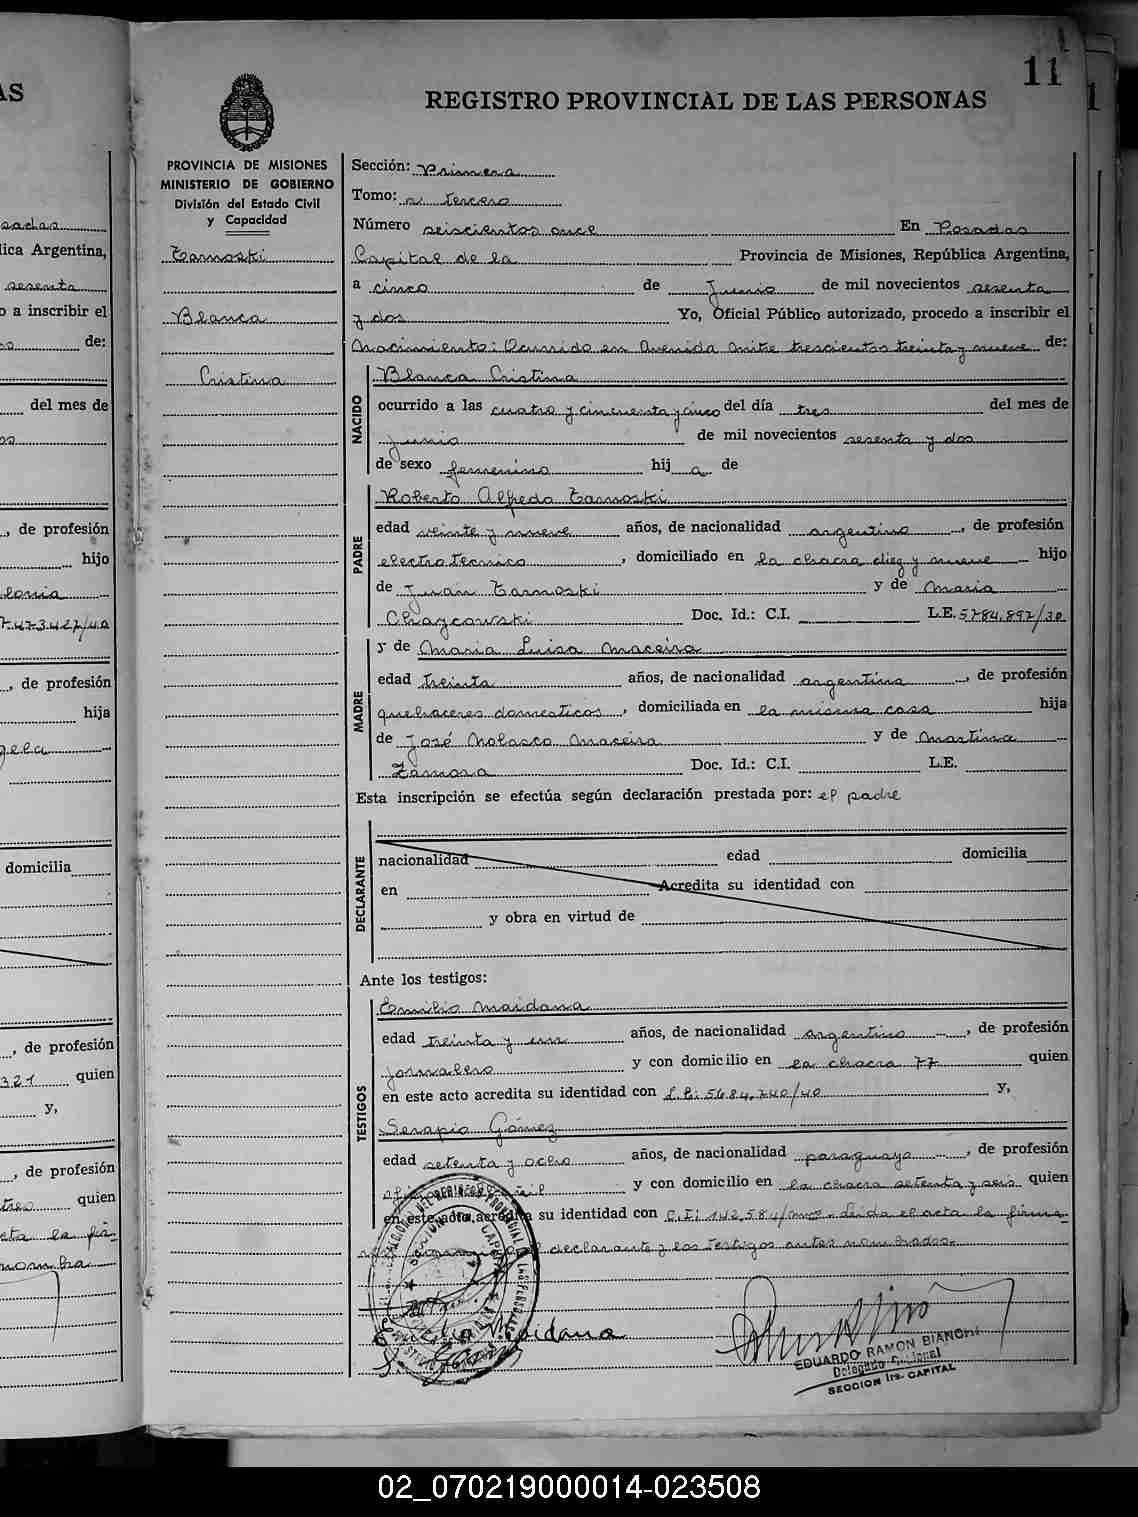 11
REGISTRO PROVINCIAL DE LAS PERSONAS
PROVINCIA DE MISIONES
MINISTERIO DE GOBIERNO
División del Estado Civil
y Capacidad
Tarnoski
Blanca
Cristina
Sección: Primera
Tomo: tercero
Número seiscientos once En Posadas
Capital de la Provincia de Misiones, República Argentina,
a cinco de Junio de mil novecientos sesenta
y dos Yo, Oficial Público autorizado, procedo a inscribir el
Nacimiento: Ocurrido en Avenida Mitre trescientos treinta y nueve de:
NACIDO
Blanca Cristina
ocurrido a las cuatro y cincuenta y cinco del día tres del mes de
Junio de mil novecientos sesenta y dos
de sexo femenino hij a de
PADRE
Roberto Alfredo Tarnoski
edad veinte y nueve años, de nacionalidad argentino, de profesión
electrotecnico, domiciliado en la chacra diez y nueve hijo
de Juan Tarnoski y de Maria
Chaycowski Doc. Id.: C.I. L.E. 5784.897/30
MADRE
y de Maria Luisa Maceira
edad treinta años, de nacionalidad argentina, de profesión
quehaceres domesticos, domiciliada en la misma casa hija
de José Nolasco Maceira y de Martina
Zamora Doc. Id.: C.I. L.E.
Esta inscripción se efectúa según declaración prestada por: el padre
DECLARANTE
nacionalidad edad domicilia
en Acredita su identidad con
y obra en virtud de
Ante los testigos:
TESTIGOS
Emilio Maidana
edad treinta y un años, de nacionalidad argentino, de profesión
jornalero y con domicilio en la chacra 77 quien
en este acto acredita su identidad con L.E: 5684.740/40 y,
Serapio Gómez
edad setenta y ocho años, de nacionalidad paraguayo, de profesión
y con domicilio en la chacra setenta y seis quien
en este acto acredita su identidad con C.I: 142.584/mnes. Leída el acta la firma
declarante y los testigos antes nombrados.
Emilio Maidana
S. Gómez
EDUARDO RAMON BIANCHI
Delegado Seccional
SECCION 1ra. CAPITAL
02_070219000014-023508